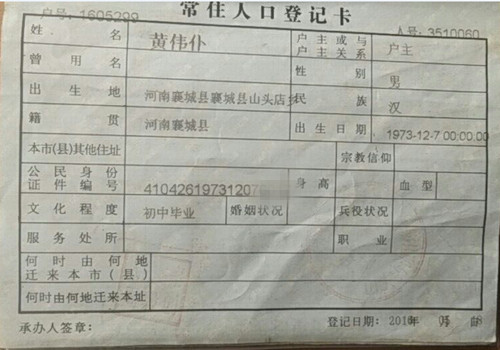 常住人口登记卡
户号: 1605299 人号: 3510060
姓名 黄伟仆 户主或与户主关系 户主
曾用名 性别 男
出生地 河南襄城县襄城县山头店乡 民族 汉
籍贯 河南襄城县 出生日期 1973-12-7 00:00:00
本市(县)其他住址 宗教信仰
公民身份证件编号 41042619731207 身高 血型
文化程度 初中毕业 婚姻状况 兵役状况
服务处所 职业
何时由何地迁来本市(县)
何时由何地迁来本址
承办人签章: 登记日期: